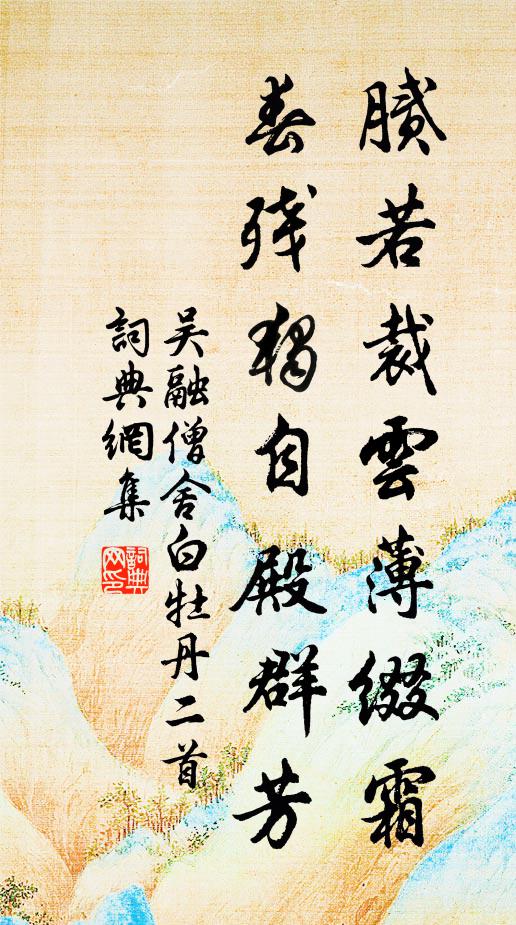 膩若裁雲薄綴霜
春残獨自殿群芳
吴融僧舍白牡丹二首
詞典網集
詞典
网印